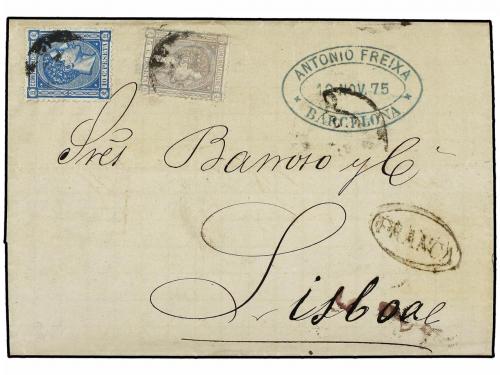 ANTONIO FREIXA
10 NOV. 75
BARCELONA
Srés Barroso y Cª
FRANCA
Lisboa